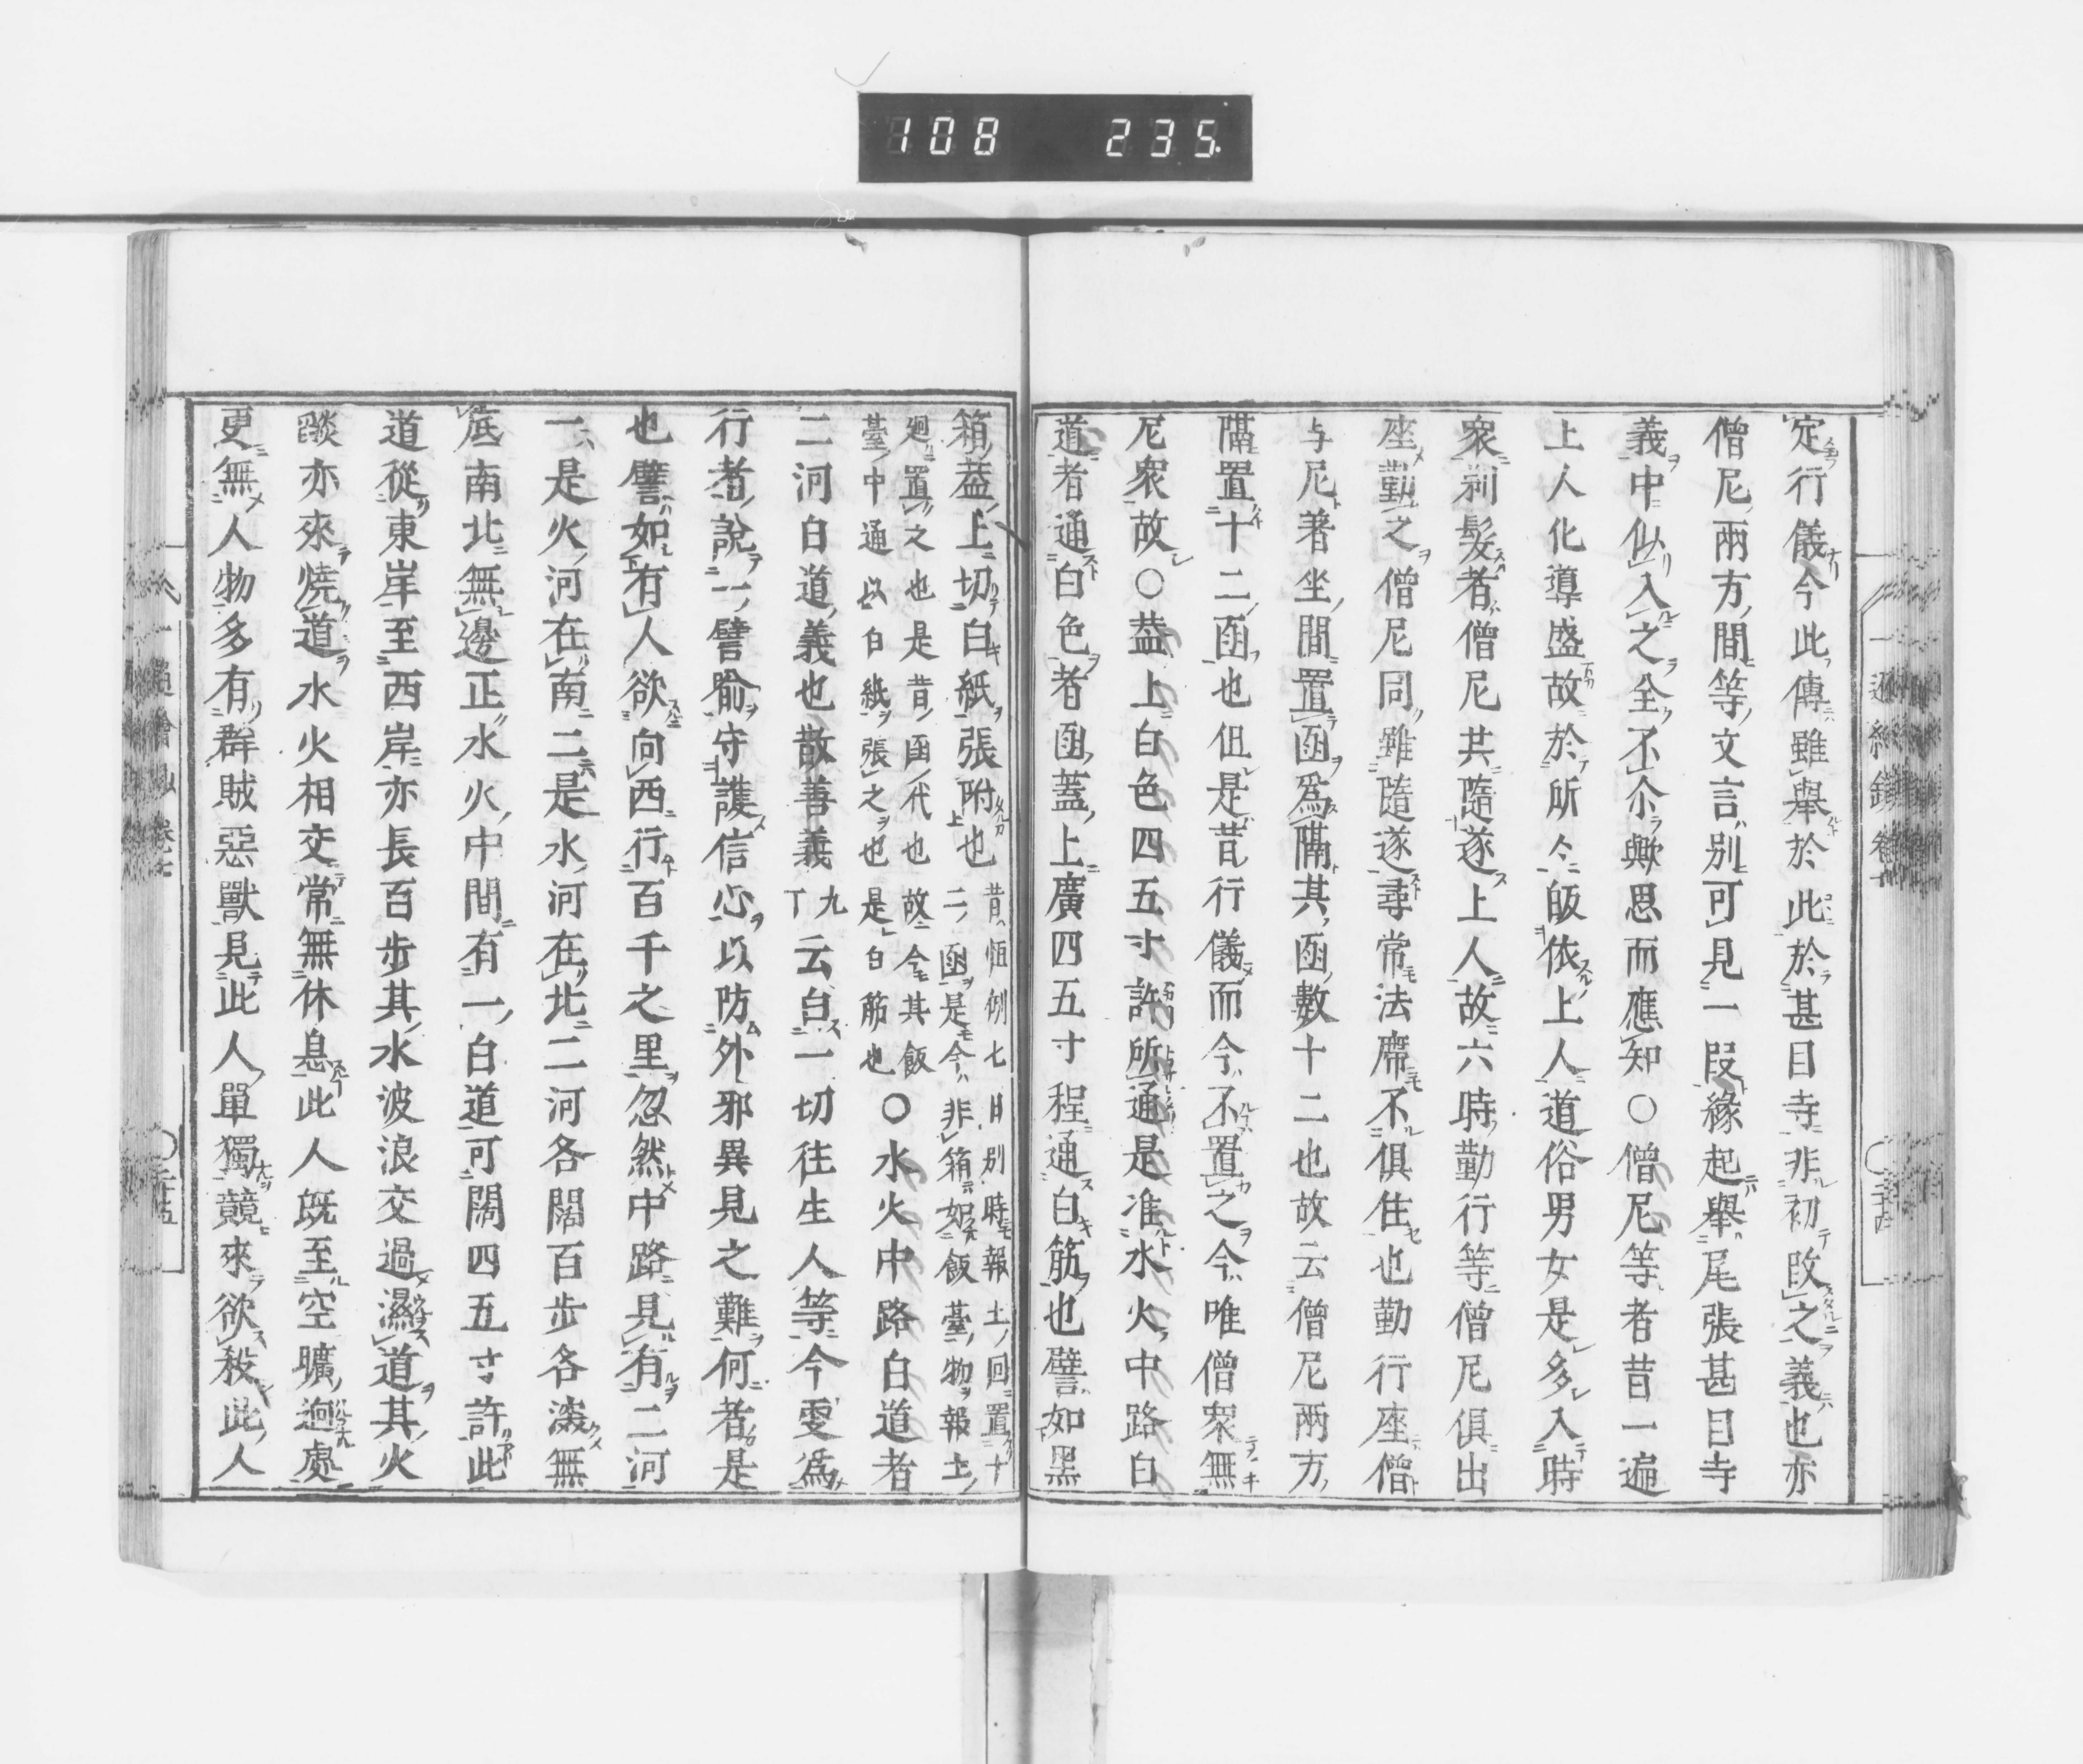 108 235
定行儀今此傳雖擧於此於甚目寺非初改之義也亦
僧尼兩方間等文言別可見一段緣起擧尾張甚目寺
義中似入之全不尒歟思而應知○僧尼等者昔一遍
上人化導盛故於所々皈依上人道俗男女是多入時
衆剃髮者僧尼共隨逐上人故六時勤行等僧尼俱出
座勤之僧尼同雖隨逐尋常法席不俱住也勤行座僧
与尼著坐間置函爲隔其函數十二也故云僧尼兩方
隔置十二函也但是昔行儀而今不置之今唯僧衆無
尼衆故○葢上白色四五寸許所通是准水火中路白
道者通白色者函蓋上廣四五寸程通白筋也譬如黑
箱葢上切白紙張附也
昔恒例七日別時報土回置十
二函是今非箱如飯臺物報土
廻置之也是昔函代也故今其飯
臺中通以白紙張之也是白筋也
○水火中路白道者
二河白道義也散善義
九
丁
云白一切往生人等今更爲
行者說一譬喻守護信心以防外邪異見之難何者是
也譬如有人欲向西行百千之里忽然中路見有二河
一是火河在南二是水河在北二河各闊百步各深無
底南北無邊正水火中間有一白道可闊四五寸許此
道從東岸至西岸亦長百步其水波浪交過濕道其火
燄亦來燒道水火相交常無休息此人旣至空曠迥處
更無人物多有群賊惡獸見此人單獨競來欲殺此人